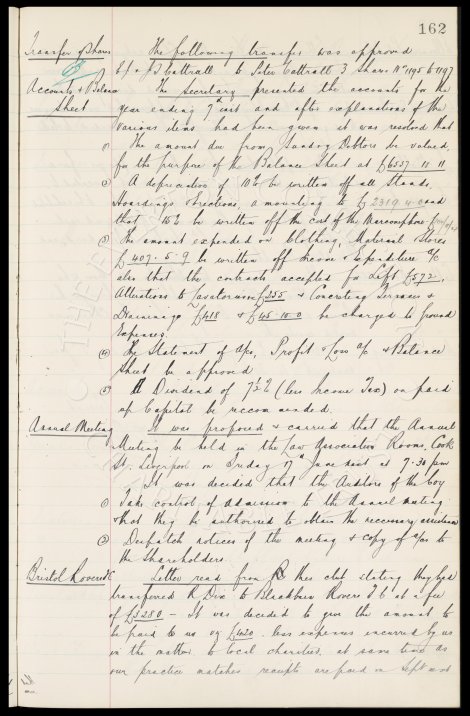 162
Transfer of Shares The following transfer was approved
Cattrall to Peter Cattrall 3 Shares Nos 1195 to 1197
Accounts & Balance The Secretary presented the accounts for the
Sheet year ending 7th inst and after explanations of the
various items had been given it was resolved that
1) The amount due from Sundry Debtors be valued
for the purpose of the Balance Sheet at £6537. 11. 11
2) A depreciation of 10% be written off all Stands,
Hoardings & Erections, amounting to £2319. 4. and
that 15% be written off the cost of the Marconiphone
3) The amount expended on Clothing, Material Stores
£407. 5. 9 be written off Income & Expenditure a/c
also that the contracts accepted for Lift £572,
Alterations to Lavatories £255 & Concreting Terraces &
Drainage £418 & £45. 10. 0 be charged to Ground
Expenses.
4) The Statement of a/cs, Profit & Loss a/c & Balance
Sheet be approved
5) A Dividend of 7½% (less Income Tax) on paid
up Capital be recommended.
Annual Meeting It was proposed & carried that the Annual
Meeting be held in the Law Association Rooms, Cook
St. Liverpool on Friday 17th June next at 7.30 pm
It was decided that the Auditors of the Coy
1) Take control of admission to the Annual meeting
& that they be authorised to obtain the necessary assistance
2) Despatch notices of the meeting & copy of a/cs to
the Shareholders.
Bristol Rovers Letter read from this club stating they had
transferred R Dix to Blackburn Rovers F C at a fee
of £3280 — It was decided to give the amount to
be paid to us viz £420 less expenses incurred by us
in the matter to local charities, at same time as
our practice matches receipts are paid in Sept next